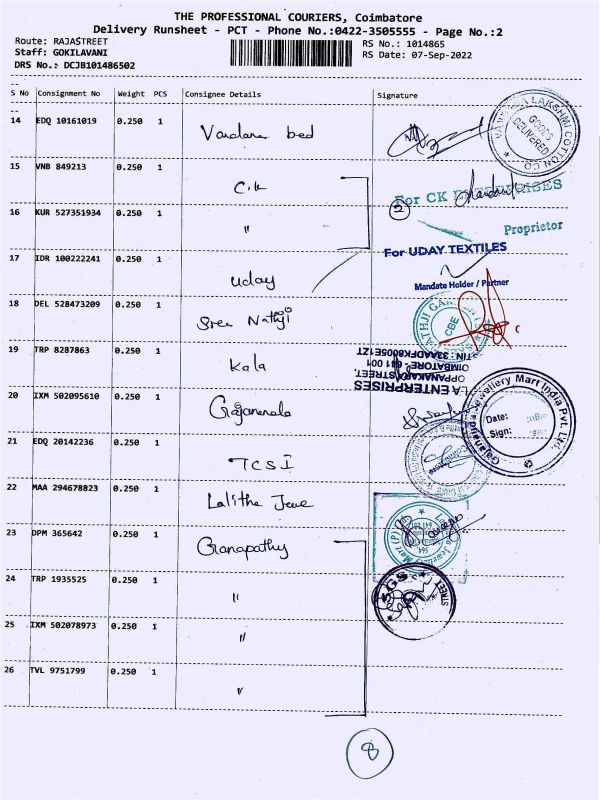 THE PROFESSIONAL COURIERS, Coimbatore
Delivery Runsheet - PCT - Phone No.:0422-3505555 - Page No.:2
Route: RAJASTREET
RS No.: 1014865
Staff: GOKILAVANI
RS Date: 07-Sep-2022
DRS No.: DCJB101486502
S No Consignment No Weight PCS Consignee Details Signature
14 EDQ 10161019 0.250 1
bed
GOODS DELIVERED
LAKSHMI COTTON CO
15 VNB 849213 0.250 1 C.K
For CK ENTERPRISES
16 KUR 527351934 0.250 1 "
2
Proprietor
For UDAY TEXTILES
17 IDR 100222241 0.250 1 Uday
Mandate Holder / Partner
18 DEL 528473209 0.250 1 Sree Nathji
CBE
19 TRP 8287863 0.250 1 Kala
LA ENTERPRISES
OPPANAKARA STREET,
COIMBATORE - 641 001
TIN : 33AADFK8005E1ZT
20 IXM 502095610 0.250 1
Gajananda Jewellery Mart India Pvt. Ltd.
Date:
Sign:
21 EDQ 20142236 0.250 1 TCSI
22 MAA 294678823 0.250 1 Lalitha
Jewellery Mart (P)
23 DPM 365642 0.250 1 Ganapathy
24 TRP 1935525 0.250 1 "
SGS
STREET
25 IXM 502078973 0.250 1 "
26 TVL 9751799 0.250 1 "
8